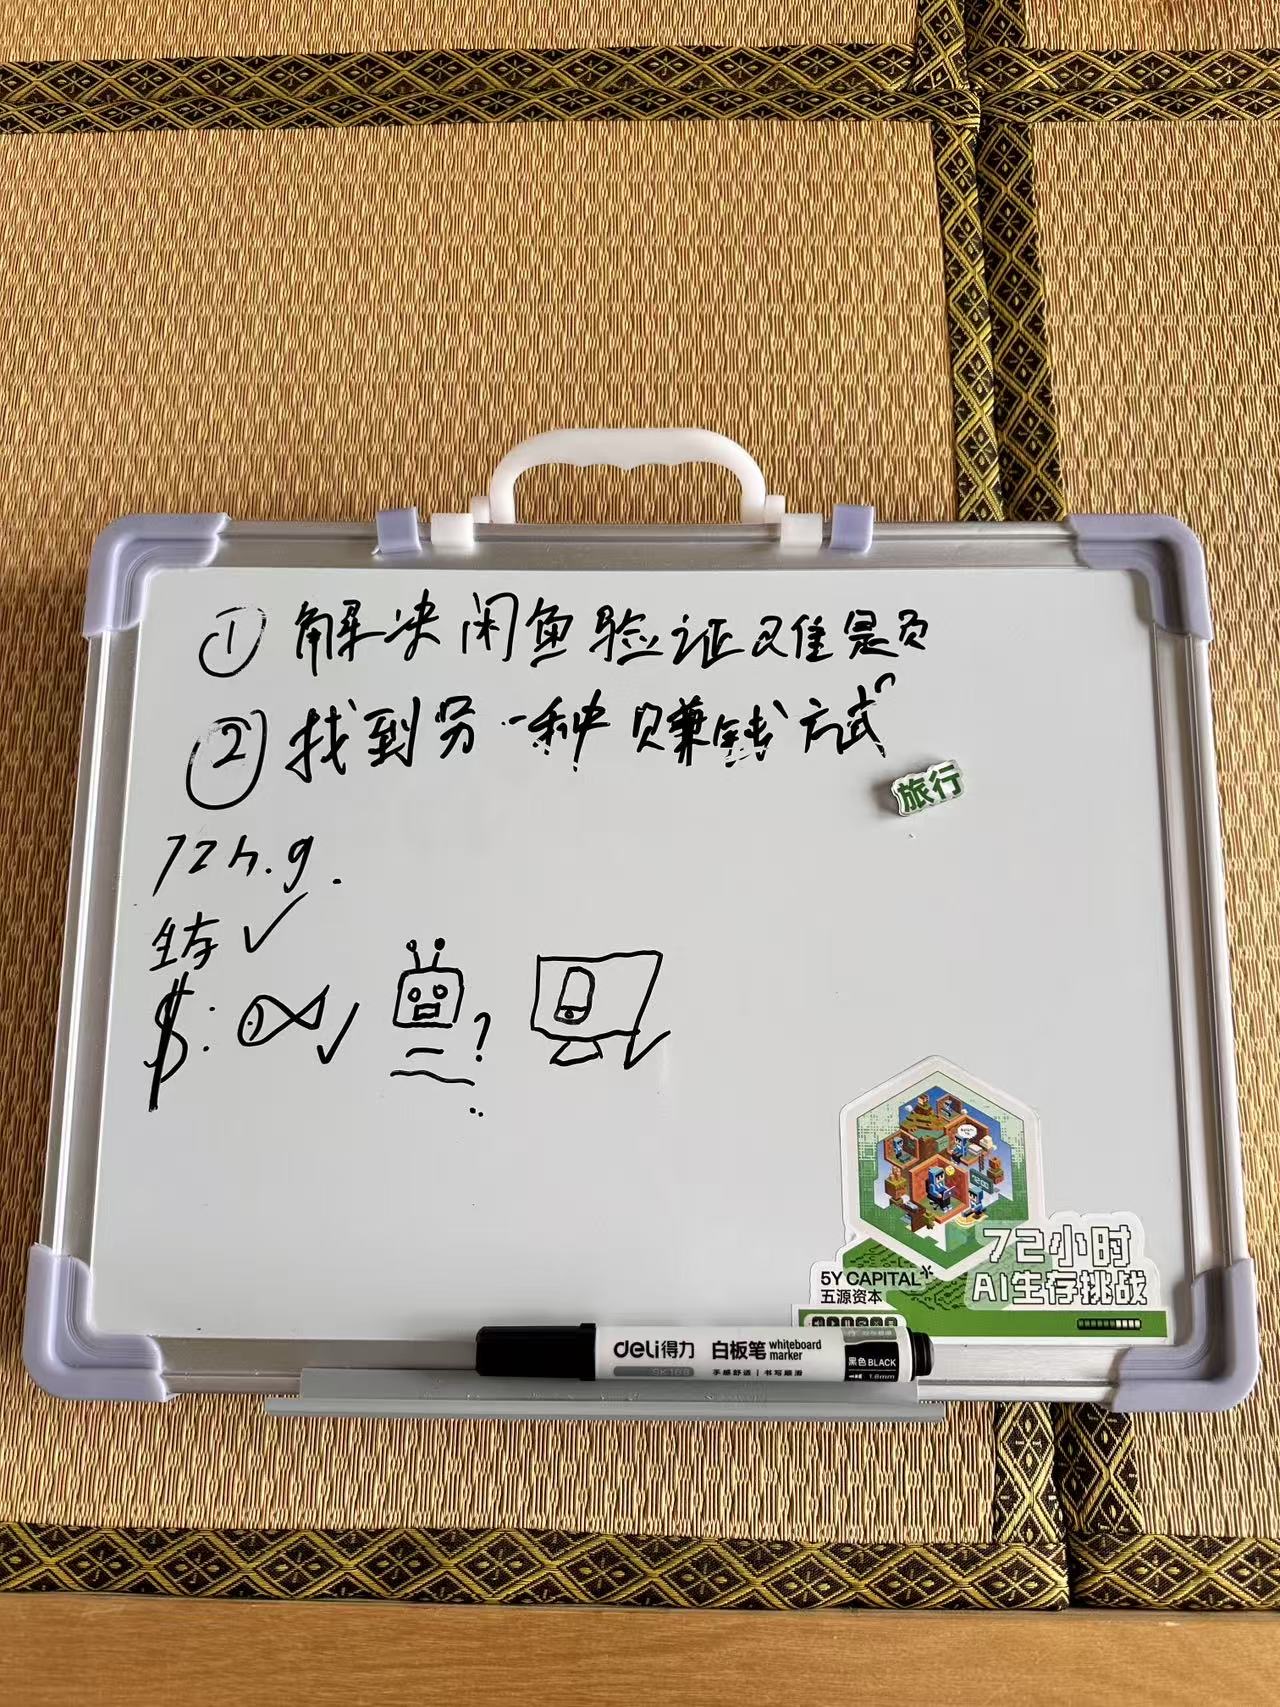 ① 解决闲鱼验证难题
② 找到另一种赚钱方式
旅行
72h.g.
生存 ✓
$:
?
72小时
AI生存挑战
5Y CAPITAL
五源资本
deli得力 白板笔 whiteboard marker
SK168 手感舒适 | 书写顺滑
黑色 BLACK
1.6mm